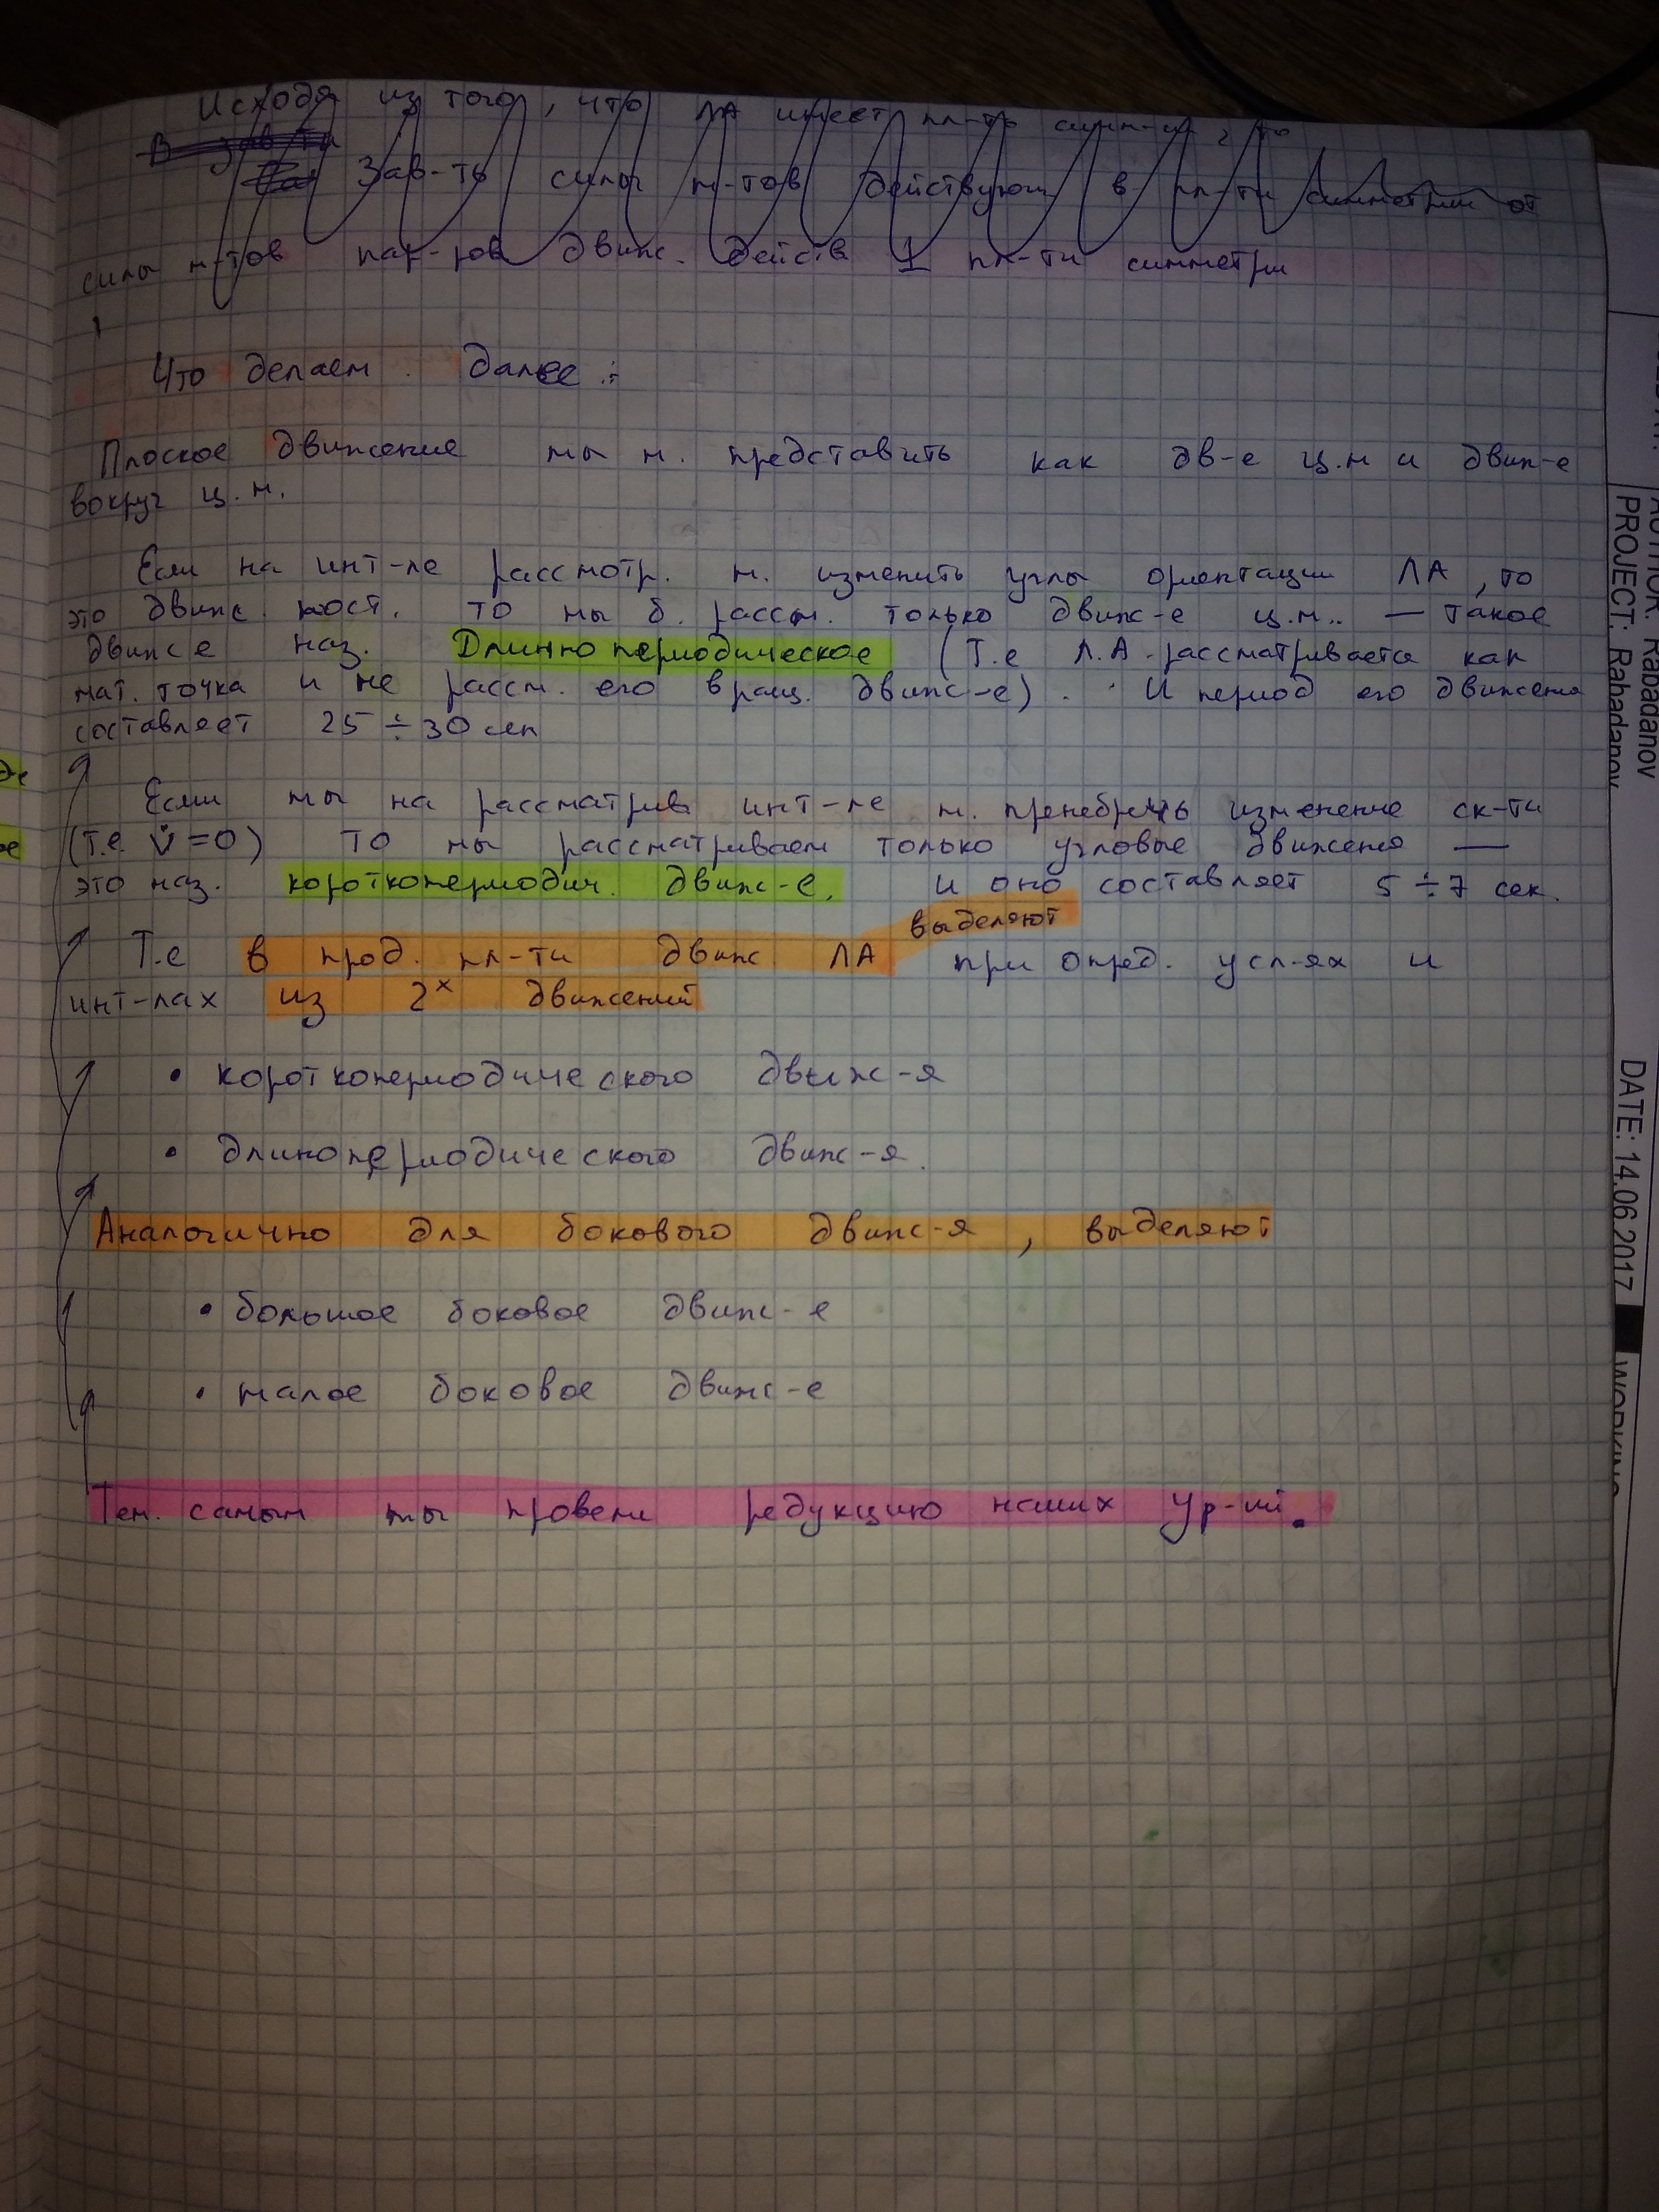 Исходя из того, что ЛА имеет пл-ть симм-и, то
В зав-ти
Зав-ть силы м-тов действующ в пл-ти симметрии от
силы м-тов пар-ров движ. действ ⊥ пл-ти симметри
Что делаем далее :
Плоское движение мы м. представить как дв-е ц.м и движ-е
вокруг ц.м.
Если на инт-ле рассмотр. м. изменить углы ориентации ЛА, то
это движ. пост. то мы б. рассм. только движ-е ц.м.. — такое
движ е наз. Длинно периодическое (Т.е Л.А. рассматривается как
мат. точка и не рассм. его вращ. движ-е). И период его движения
составляет 25 ÷ 30 сек
Если мы на рассматрив инт-ле м. пренебречь изменение ск-ти
(т.е. V̇ = 0) то мы рассматриваем только угловые движения —
это наз. короткопериодич. движ-е. и оно составляет 5 ÷ 7 сек.
выделяют
Т.е в прод. пл-ти движ. ЛА при опред. усл-ях и
инт-лах из 2х движений
• короткопериодического движ-я
• длинопериодического движ-я.
Аналогично для бокового движ-я, выделяют
• большое боковое движ-е
• малое боковое движ-е
Тем. самым мы провели редукцию наших ур-ий.
AUTHOR: Rabadanov
PROJECT: Rabadanov
DATE: 14.06.2017
WORKING